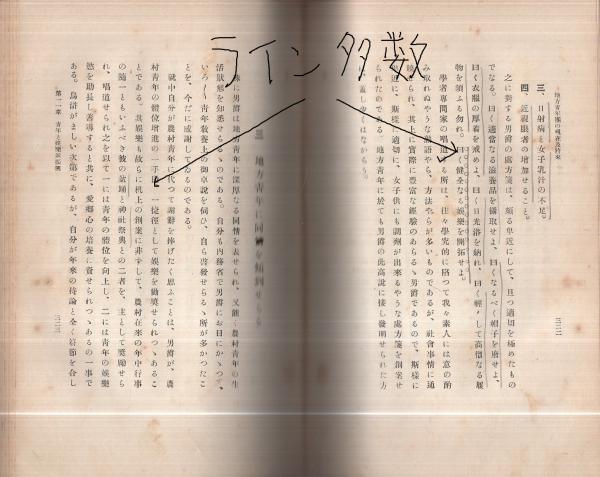 ライン多数
地方青年團の現在及将來
三、日射病と女子乳汁の不足。
四、近視眼者の增加せること。
之に對する男爵の處方箋は、頗る卑近にして、且つ適切を極めたもの
でなる。曰く適當なる滋養品を攝取せよ、曰くなるべく帽子を廢せよ、
曰く衣服の厚着を戒めよ、曰く日光浴を納れ、曰く輕々して高價なる履
物を須ふる勿れ。曰く健全なる娛樂を開拓せよ。
學者專門家の唱道する所は、往々學究的に陷つて我々素人には意の酌
み取れぬやうな熟語やら、方法やらが多いものであるが、社會事情に通
曉せられ、其上に實際に豐富な經驗のあらるゝ男爵であるので、斯樣に
卑近に、斯樣に適切に、女子供にも調劑が出來るやうな處方箋を創案せ
られたのである。地方青年に於ても男爵の此高說に接し發明せられた方
は蓋し少くはなからう。
三 地方青年に同情を傾倒せらる
殊に男爵は地方青年に深厚なる同情を表せられ、又能く農村青年の生
活狀態を知悉せらるゝのである。自分も內務省で男爵にお目にかゝつて、
いろ〳〵青年敎養上の御卓說を伺ひ、自ら啓發せらるゝ所が多かつたこ
とを、今だに感謝してゐるのである。
就中自分が農村青年に代つて謝辭を捧げたく思ふことは、男爵が、農
村青年の體位增進の一手段、一捷徑として娛樂を勸奬せられつゝあるこ
とである。其娛樂も故らに机上の創案に非ずして、農村在來の年中行事
の隨一ともいふべき彼の盆踊と神社祭典との二者を、主として奬勵せら
れ、唱道せられ之を以て一には青年の體位を向上し、二には青年の娛樂
慾を助長し善導すると共に、愛鄕心の培養に資せられつゝあるの一事で
ある。烏滸がましい次第であるが、自分が年來の持論と全く符節を合し
第二章 青年と娛樂振興